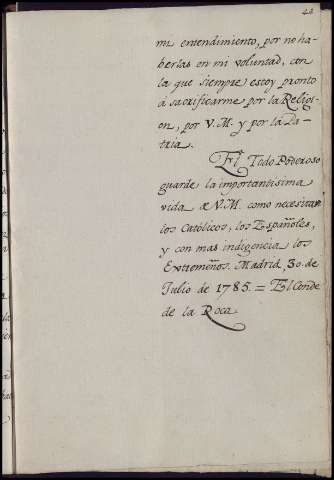 42
mi entendimiento, por no ha-
berlas en mi voluntad, con
la que siempre estoy pronto
á sacrificarme por la Religi-
on, por V. M. y por la Pa-
tria.
El Todo Poderoso
guarde la importantisima
vida de V. M. como necesitan
los Católicos, los Españoles,
y con mas indigencia los
Extremeños. Madrid, 30. de
Julio de 1785. = El Conde
de la Roca